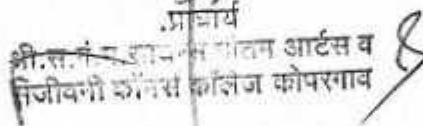 प्राचार्य
श्री.स.ग.म. गौतम आर्टस व
संजीवनी कॉमर्स कॉलेज कोपरगाव